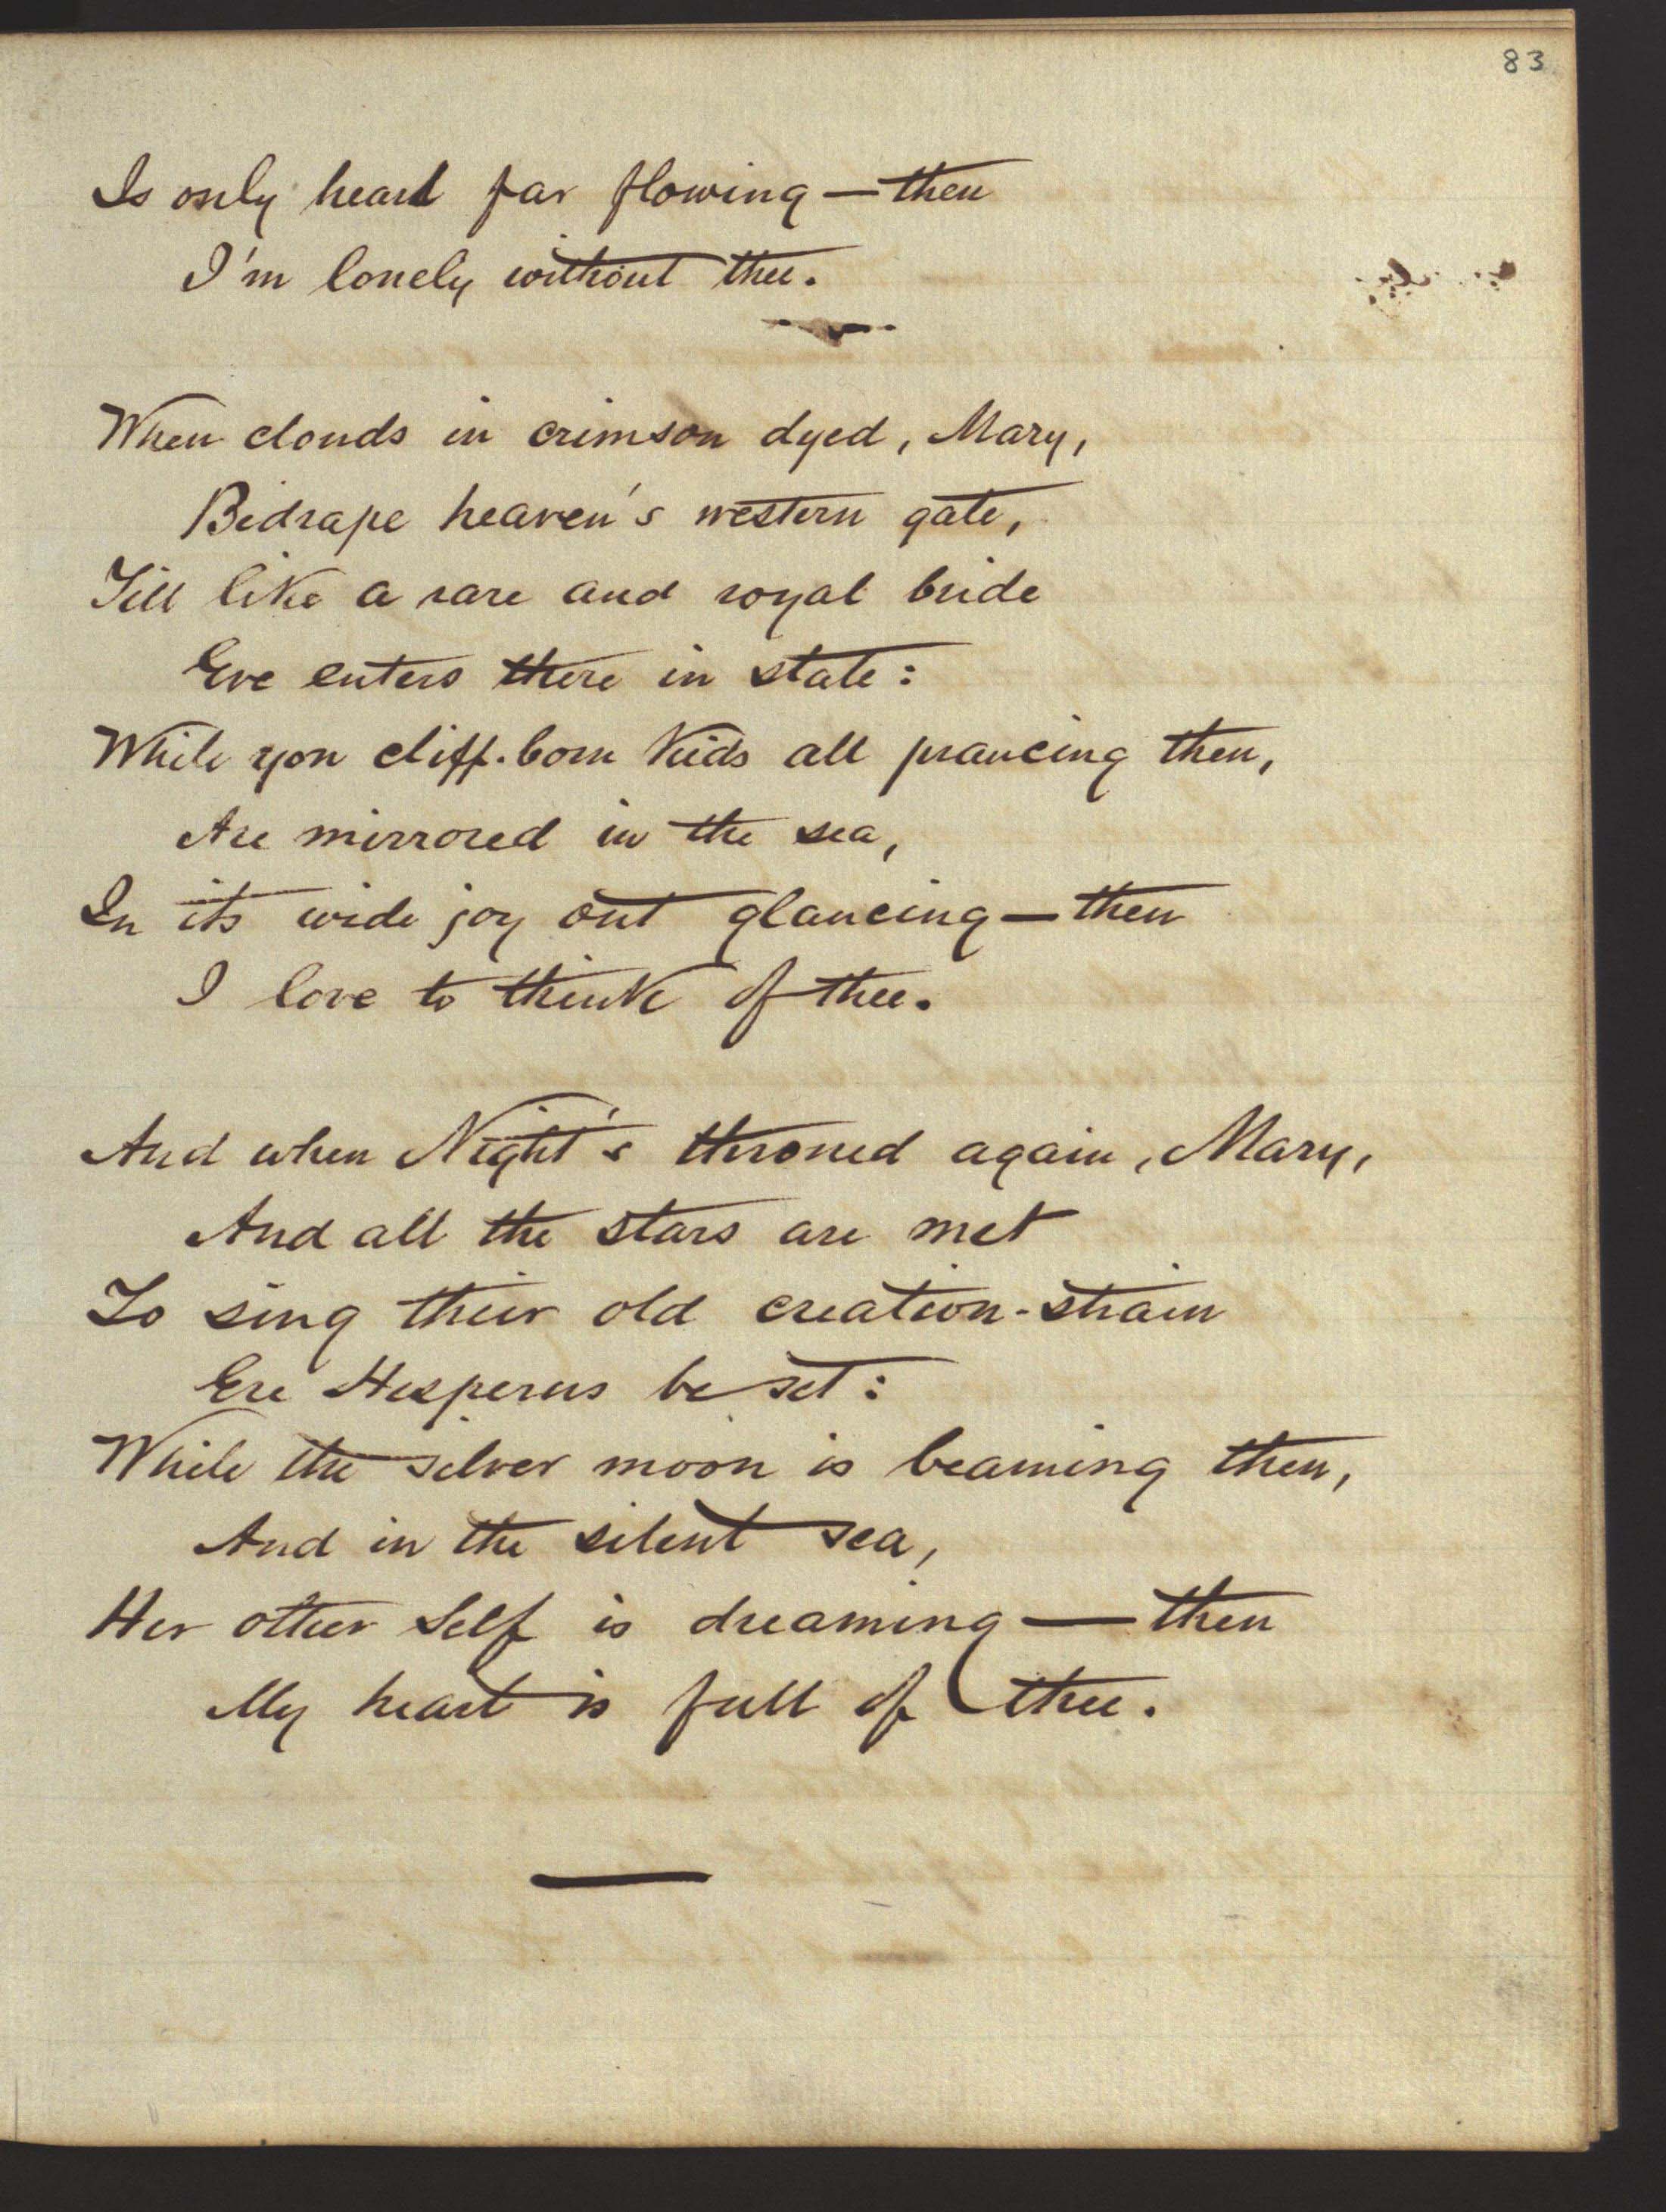 83
Is only heard far flowing — then
I'm lonely without thee.
When clouds in crimson dyed, Mary,
Bedrape heaven's western gate,
Till like a rare and royal bride
Eve enters there in state:
While yon cliff-born kids all prancing then,
Are mirrored in the sea,
In its wide joy out glancing — then
I love to think of thee.
And when Night's throned again, Mary,
And all the stars are met
To sing their old creation-strain
Ere Hesperus be set:
While the silver moon is beaming then,
And in the silent sea,
Her other Self is dreaming — then
My heart is full of thee.